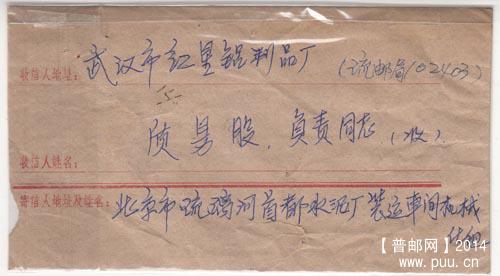 收信人地址：武汉市红星铝制品厂（琉邮局102403）
质员股，负责同志（收）
收信人姓名：
寄信人地址及姓名：北京市琉璃河首都水泥厂装运车间机械
【普邮网】2014
www.puu.cn